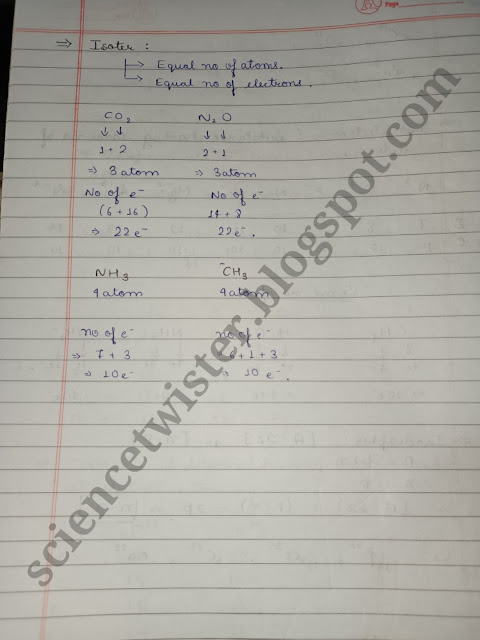 Page
⇒ Isoter :
→ Equal no of atoms.
→ Equal no of electrons.
CO₂ N₂O
↓ ↓ ↓ ↓
1 + 2 2 + 1
⇒ 3 atom ⇒ 3 atom
No of e⁻ No of e⁻
(6 + 16) 14 + 8
⇒ 22 e⁻ 22 e⁻.
NH₃ ⁻CH₃
4 atom 4 atom
no of e⁻ no of e⁻
⇒ 7 + 3 6 + 1 + 3
⇒ 10 e⁻ ⇒ 10 e⁻.
sciencetwister.blogspot.com